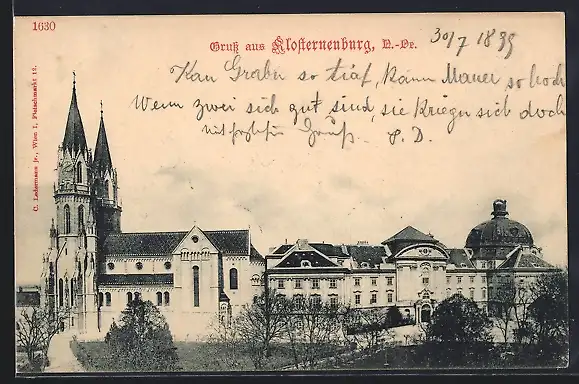 1630
Gruß aus Klosterneuburg, N.-Oe.
30/7 1899
Kan Graben so tiaf, kann Mauer so hoch
Wenn zwei sich gut sind, sie kriegen sich doch
mit Gruß. S. D.
C. Ledermann jr., Wien I, Fleischmarkt 12.